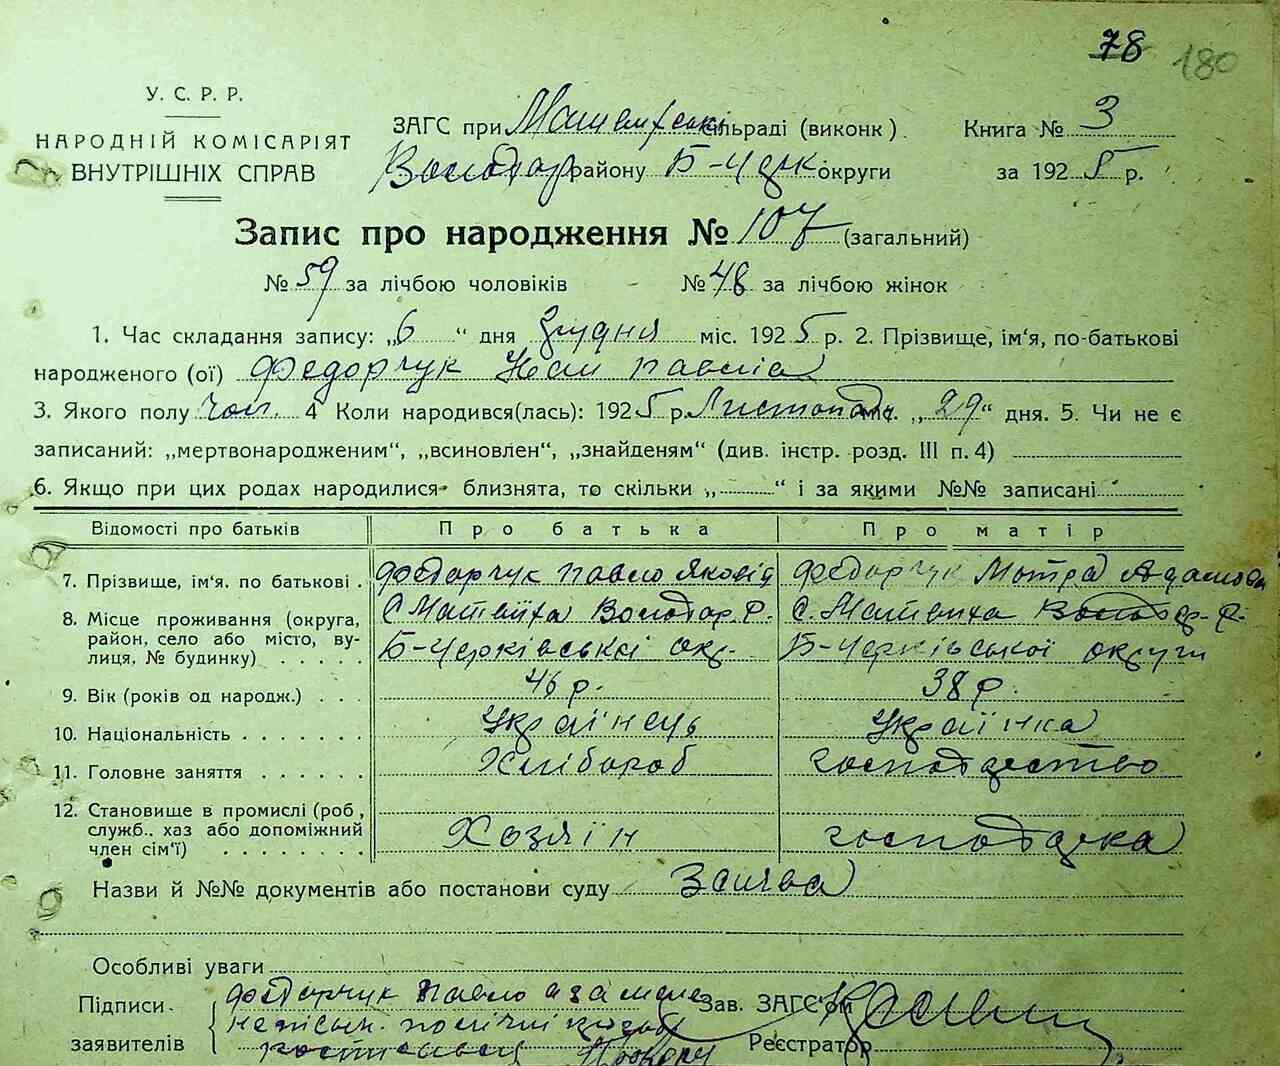 78 180
У. С. Р. Р.
НАРОДНІЙ КОМІСАРІЯТ
ВНУТРІШНІХ СПРАВ
ЗАГС при сільраді (виконк) Книга № 3
Володар району Б-Черк округи за 1925 р.
Запис про народження № 107 (загальний)
№ 59 за лічбою чоловіків № 48 за лічбою жінок
1. Час складання запису: „6“ дня грудня міс. 1925 р. 2. Прізвище, ім'я, по-батькові
народженого (ої) Федорчук
3. Якого полу чол. 4 Коли народився(лась): 1925 р. Листопада міс. „29“ дня. 5. Чи не є
записаний: „мертвонародженим“, „всиновлен“, „знайденям“ (див. інстр. розд. III п. 4)
6. Якщо при цих родах народилися близнята, то скільки „ “ і за якими №№ записані
Відомості про батьків Про батька Про матір
7. Прізвище, ім'я. по батькові . Федорчук Павло Яковів Федорчук Мотря Адамова
8. Місце проживання (округа, С Матвіїха Володар. Р. С. Матвіиха Володар. Р.
район, село або місто, ву- Б-Черківської окр. Б-Черківської округи
лиця, № будинку) . . . . .
9. Вік (років од народж.) . . . 46 р. 38 р.
10. Національність . . . . . . . Українець Українка
11. Головне заняття . . . . . . Хлібороб господарство
12. Становище в промислі (роб,
служб.. хаз або допоміжний Хозяїн господарка
член сім'ї) . . . . . . . .
Назви й №№ документів або постанови суду Заява
Особливі уваги
Підписи Федорчук Павло а за мене Зав. ЗАГС'ом
неписьм.
заявителів Реєстратор